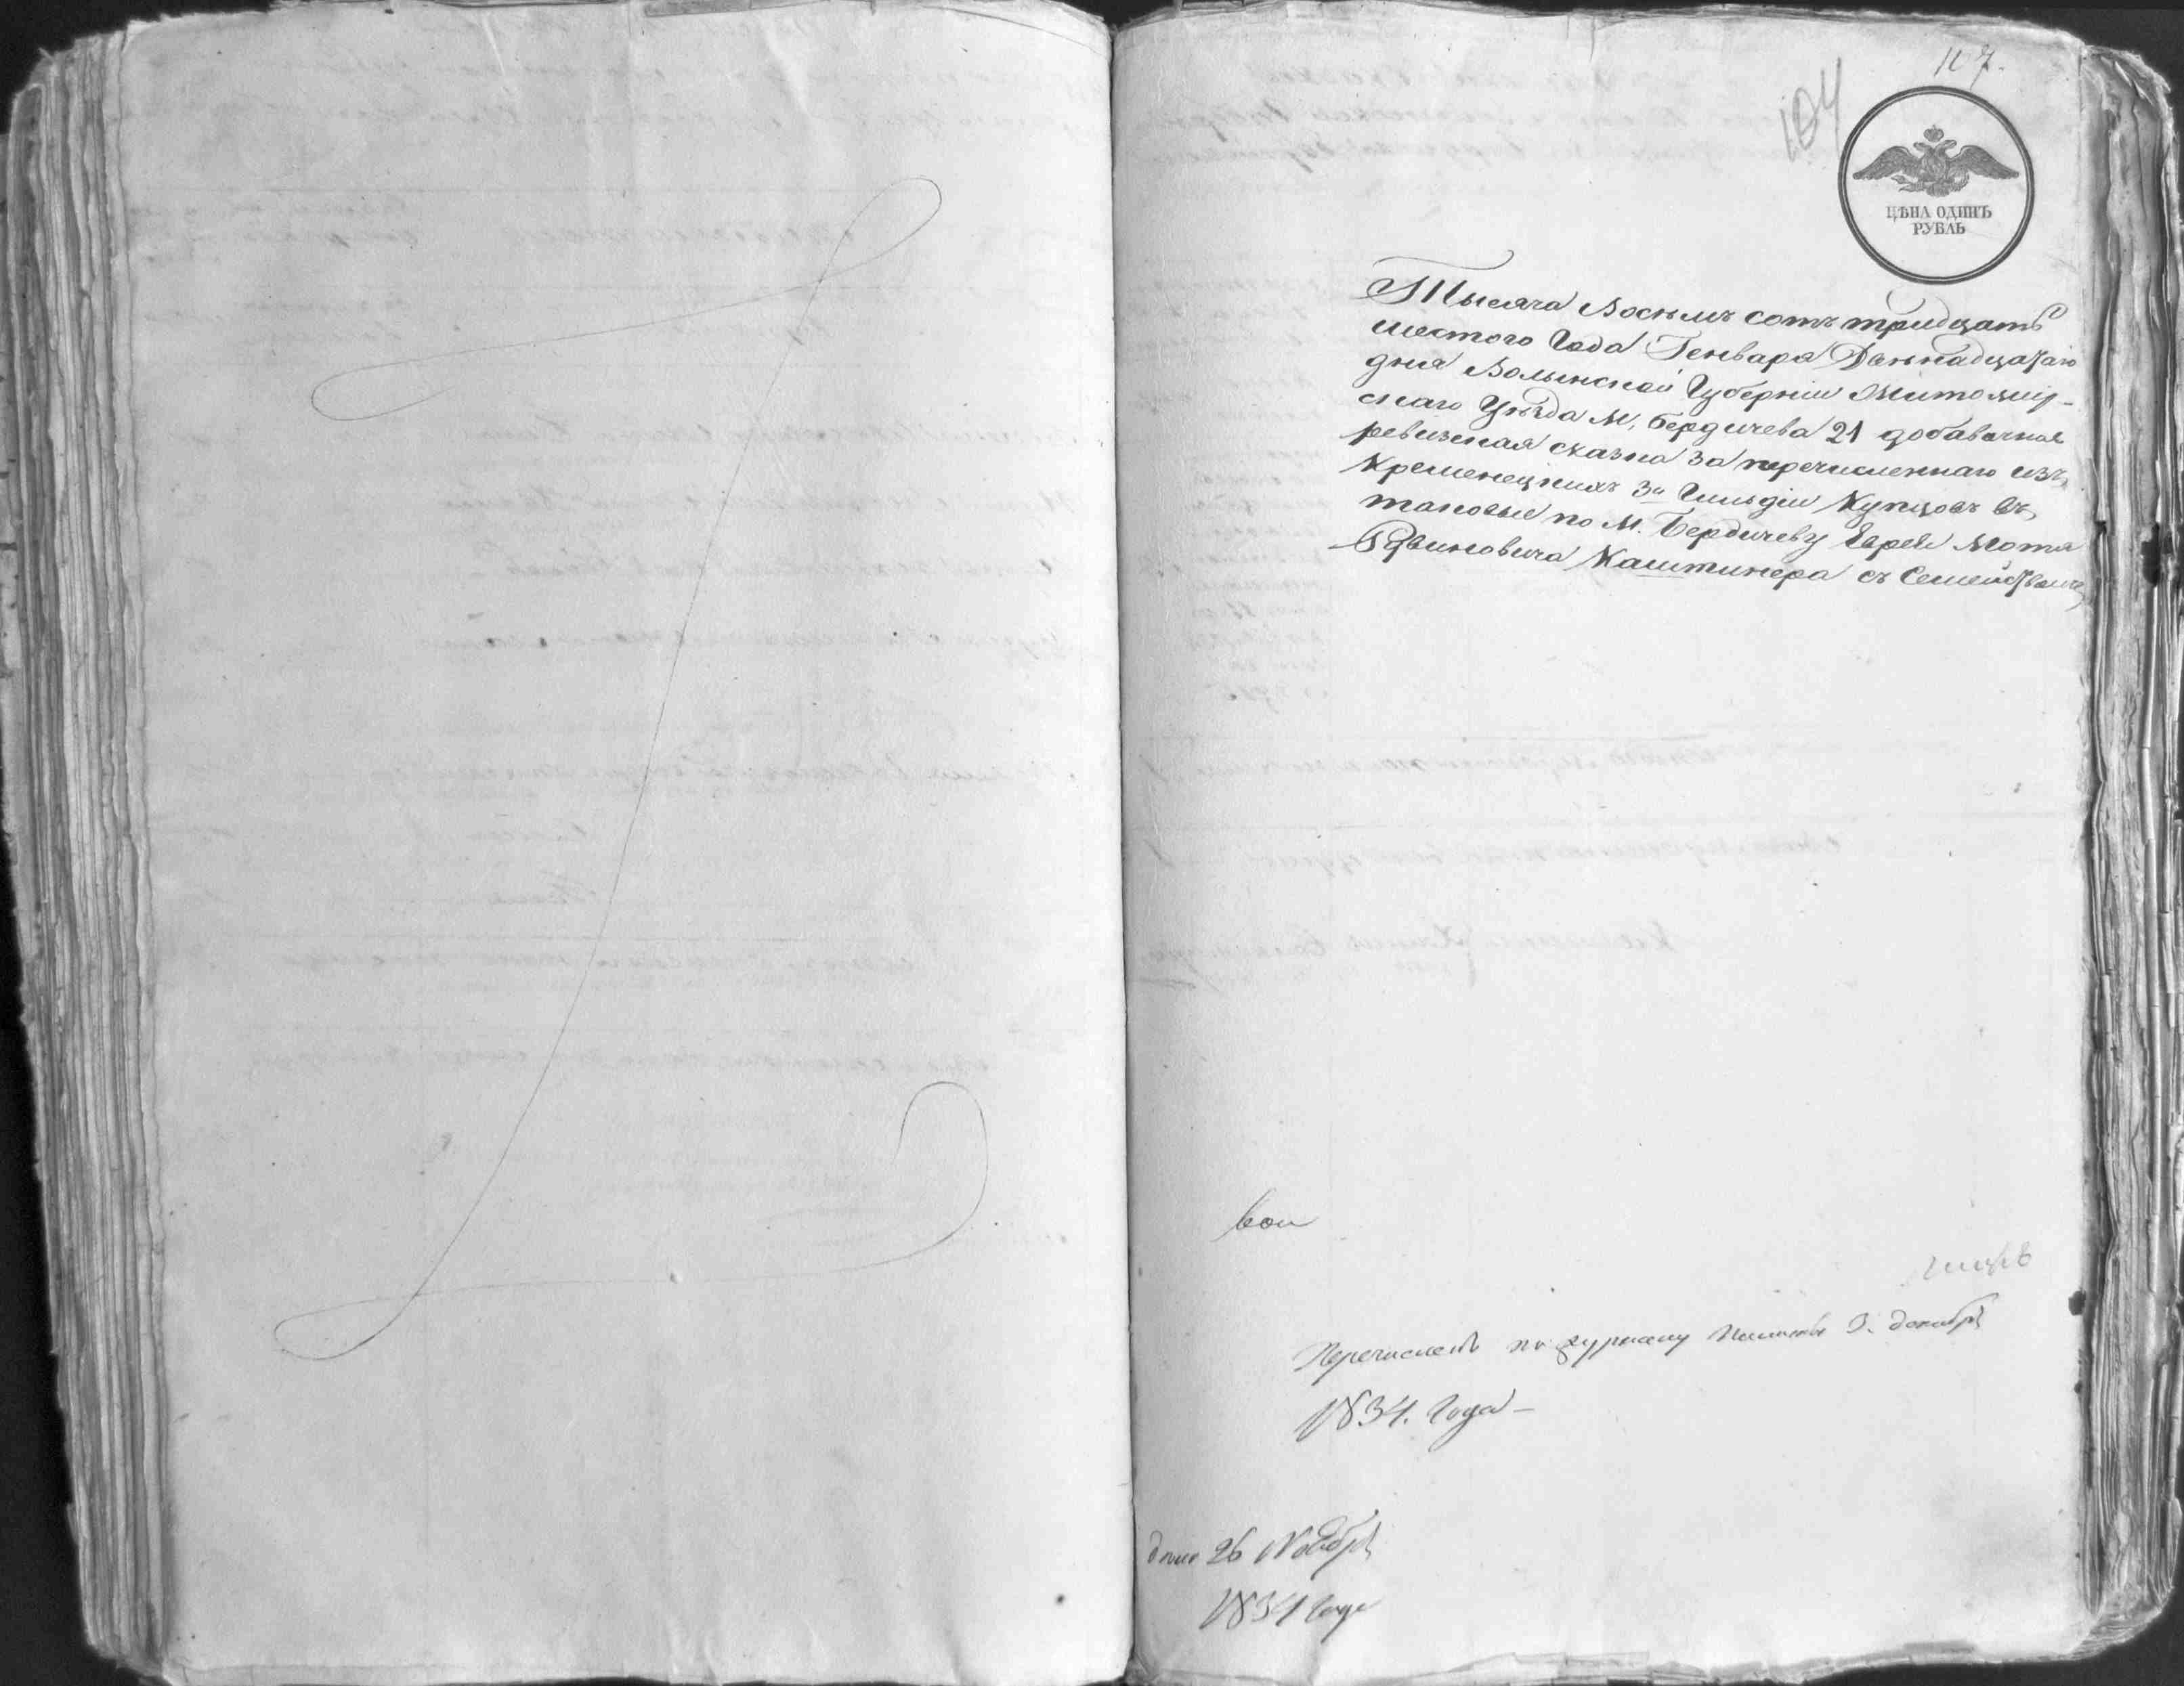 107.
104
ЦѢНА ОДИНЪ
РУБЛЬ
Тысяча Восѣмъ сотъ тридцать
шестого Года Генваря Двѣнадцатаго
дня Волынской Губерніи Житомир-
скаго Уѣзда М. Бердичева 21 добавочная
ревизская сказка за перечисленнаго изъ
Кременецкихъ 3й Гильдіи Купцовъ въ
таковые по М. Бердичеву Еврея Мотя
Рувиновича Каштинера съ Семействомъ
Перечисленъ по журналу Палаты 3. декабря
1834. Года –
26 Ноября
1834 Года